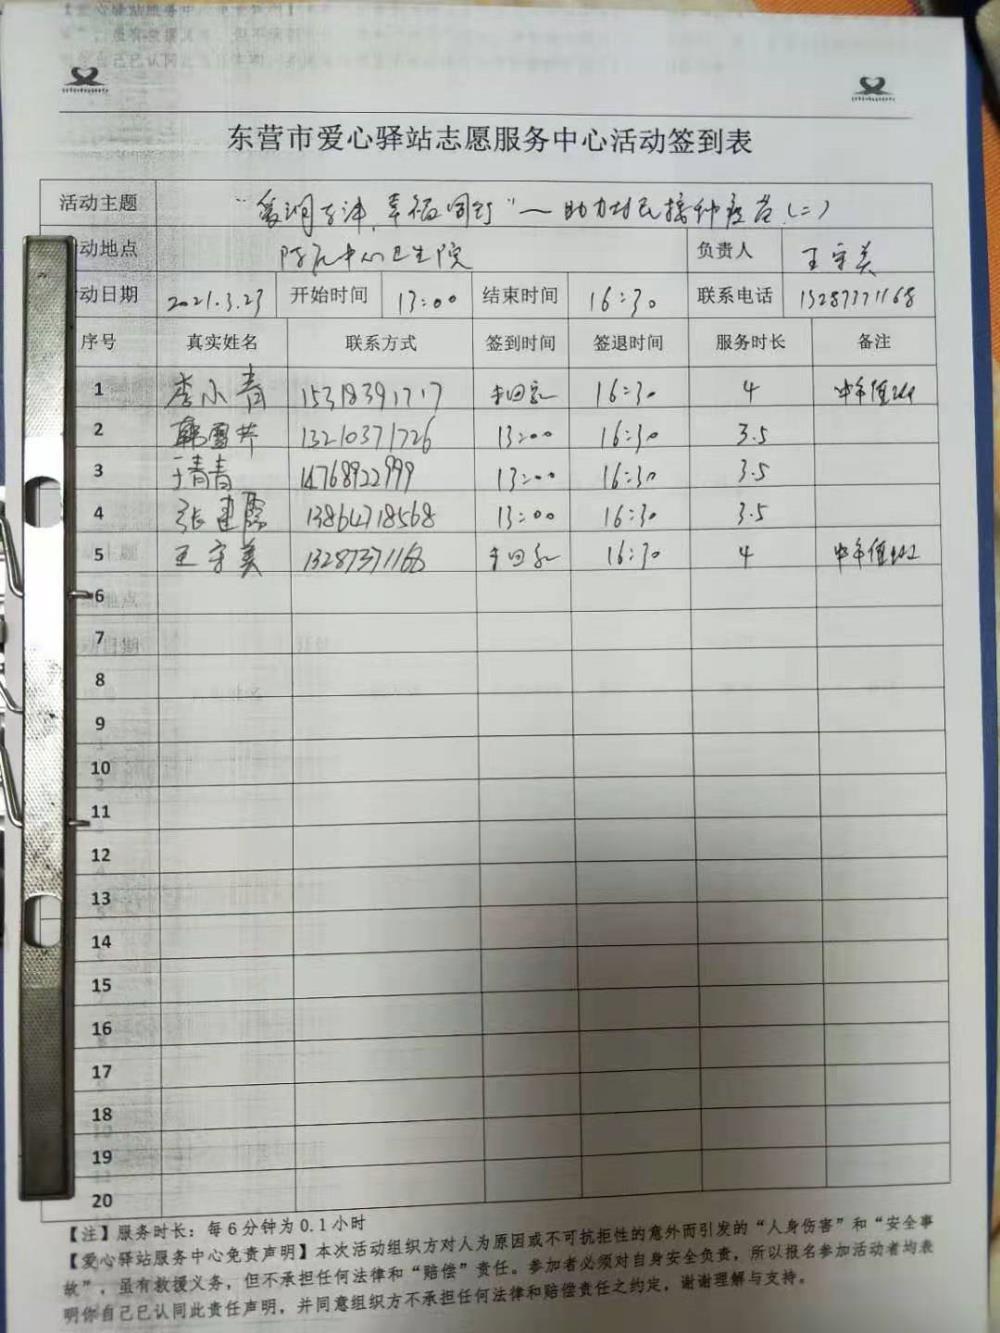 东营市爱心驿站志愿服务中心活动签到表
活动主题 "爱润 幸福同行"—助力 接种疫苗(二)
动地点 中心卫生院 负责人 王守美
动日期 2021.3.23 开始时间 13:00 结束时间 16:30 联系电话 13287371168
序号 真实姓名 联系方式 签到时间 签退时间 服务时长 备注
1 李小青 15318391717 16:30 4 中午值班
2 韩雪芹 13210371726 13:00 16:30 3.5
3 于青青 14768922999 13:00 16:30 3.5
4 张建霞 13864718568 13:00 16:30 3.5
5 王守美 13287371168 16:30 4 中午值班
6
7
8
9
10
11
12
13
14
15
16
17
18
19
20
【注】服务时长：每6分钟为0.1小时
【爱心驿站服务中心免责声明】本次活动组织方对人为原因或不可抗拒性的意外而引发的“人身伤害”和“安全事
故”，虽有救援义务，但不承担任何法律和“赔偿”责任。参加者必须对自身安全负责，所以报名参加活动者均表
明你自己已认同此责任声明，并同意组织方不承担任何法律和赔偿责任之约定，谢谢理解与支持。